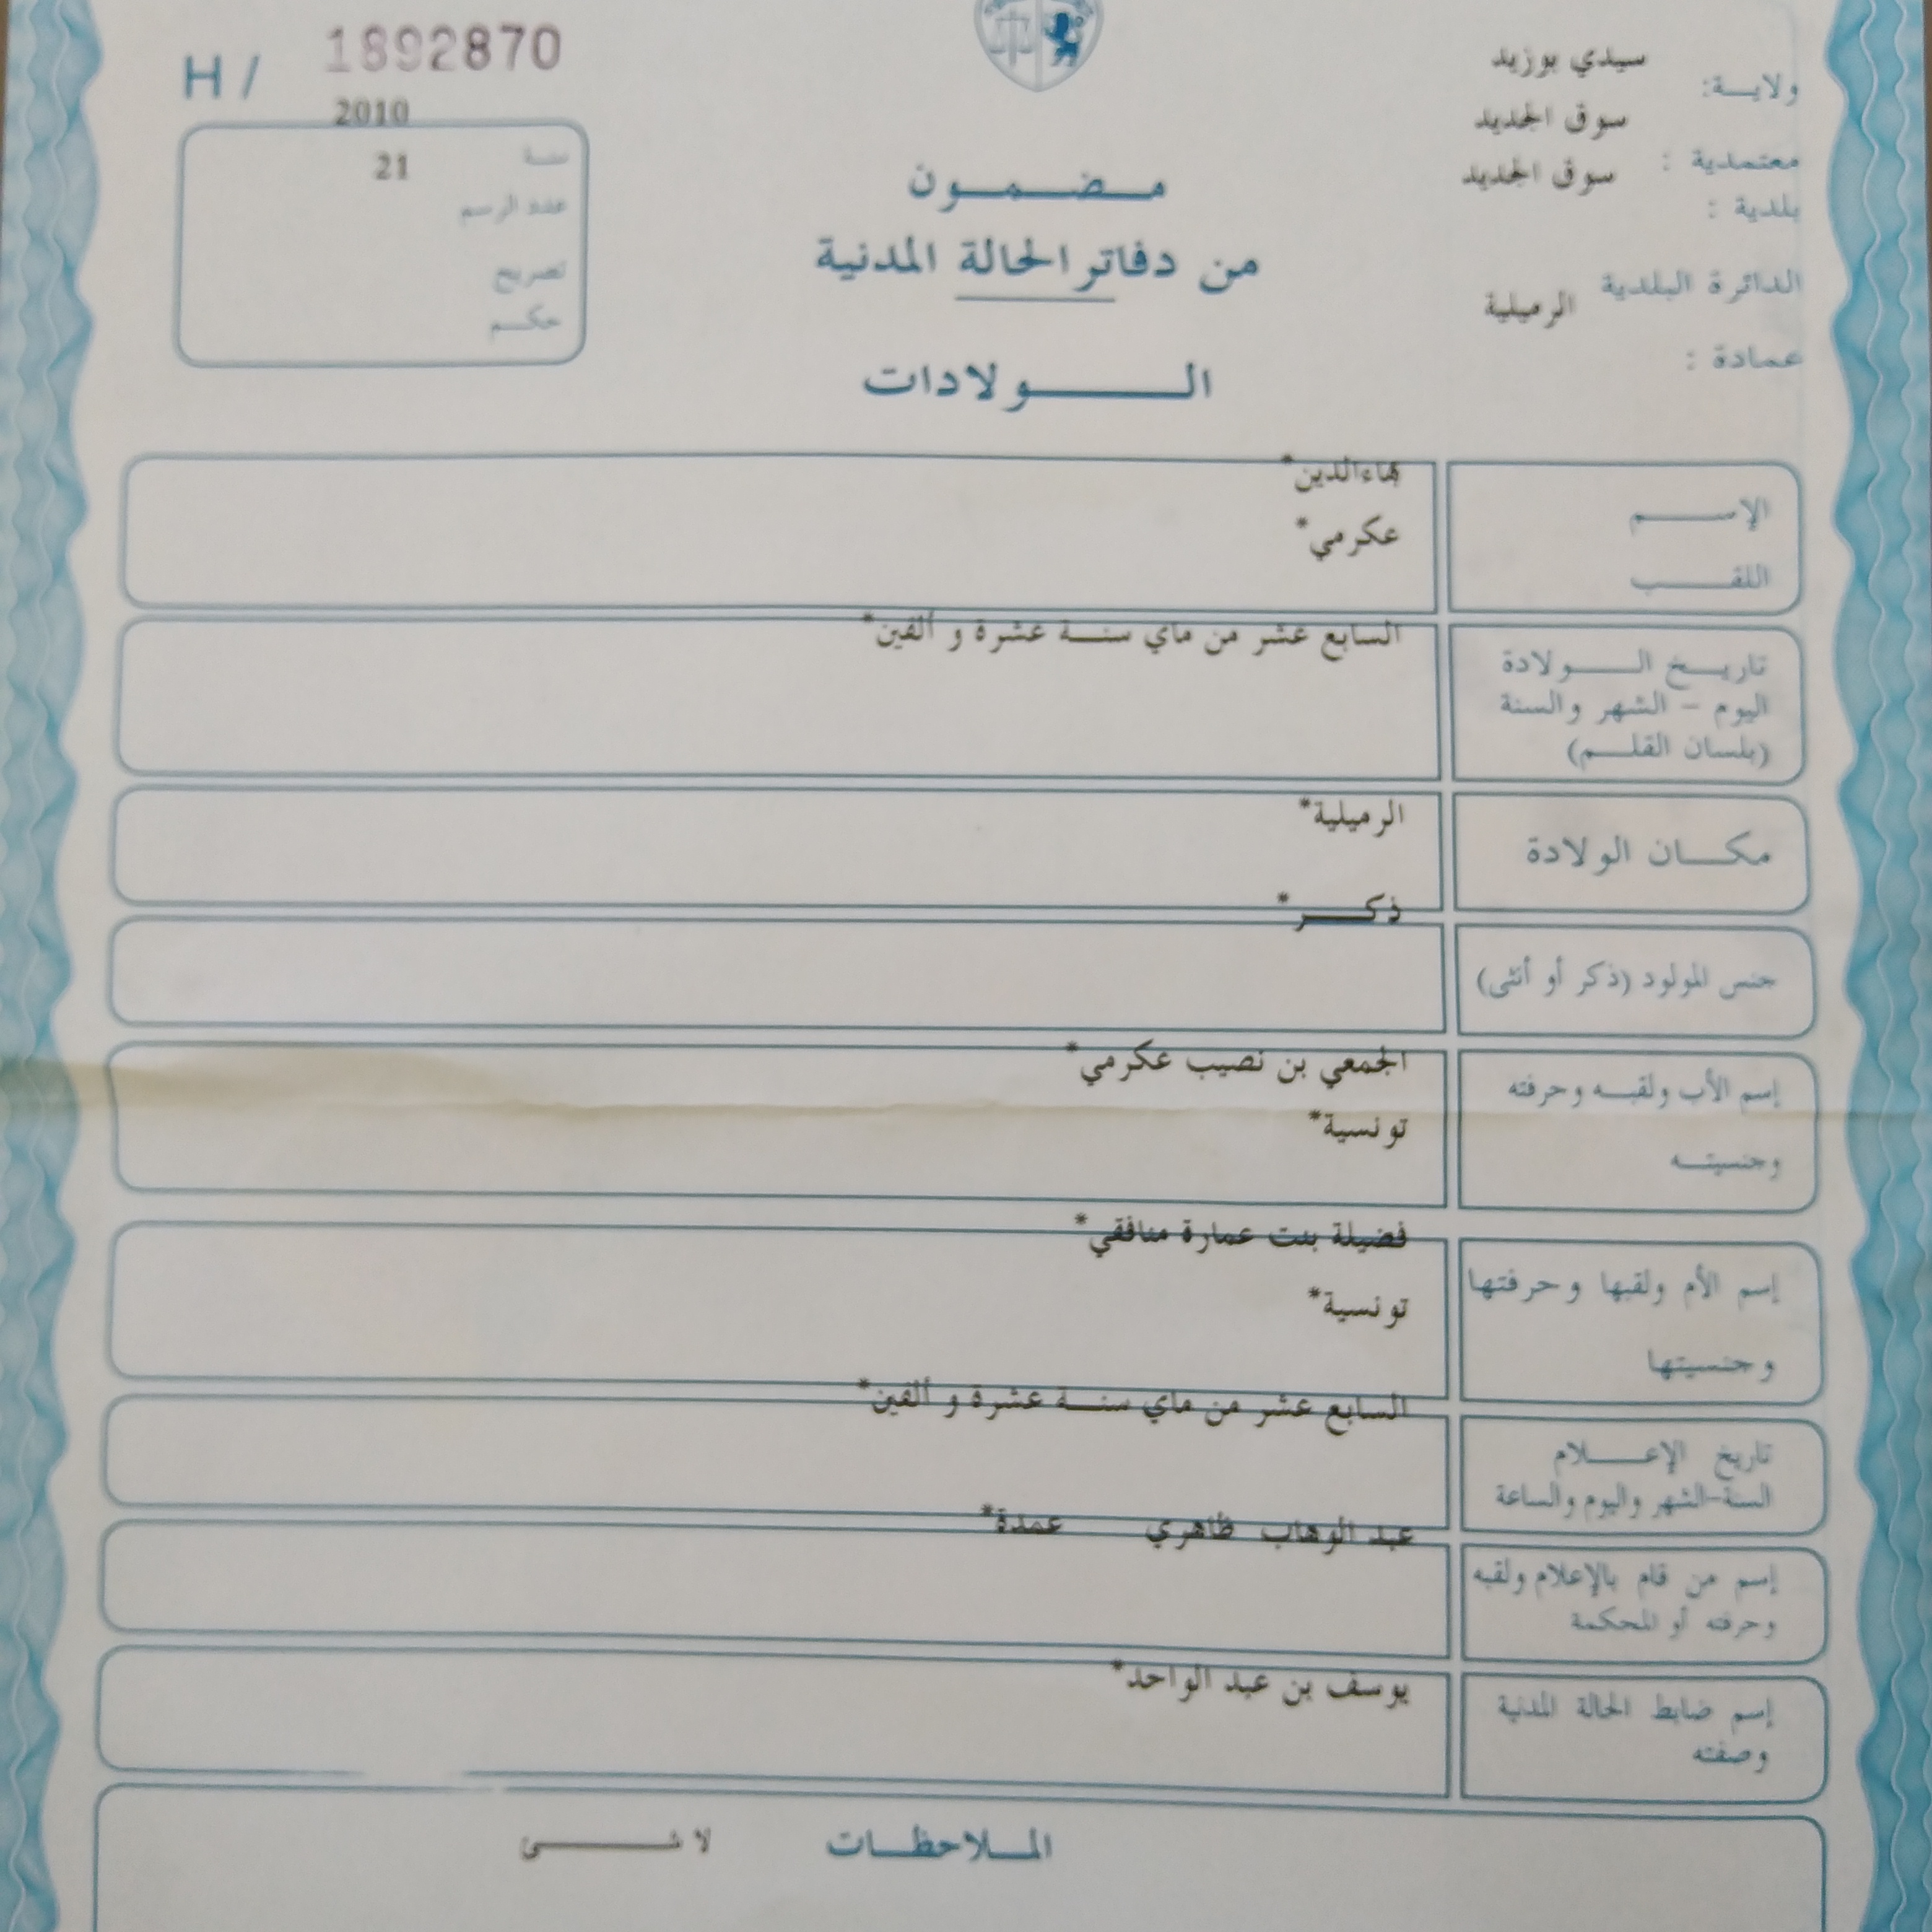 H / 1892870
ولاية: سيدي بوزيد
معتمدية : سوق الجديد
بلدية : سوق الجديد
الدائرة البلدية
عمادة : الرميلية
2010
سنة
21
عدد الرسم
تصريح
حكم
مضمون
من دفاتر الحالة المدنية
الولادات
الإسم
بهاءالدين*
اللقب
عكرمي*
تاريخ الولادة
اليوم - الشهر والسنة
(بلسان القلم)
السابع عشر من ماي سنة عشرة و ألفين*
مكان الولادة
الرميلية*
جنس المولود (ذكر أو أنثى)
ذكر*
إسم الأب ولقبه وحرفته
وجنسيته
الجمعي بن نصيب عكرمي*
تونسية*
إسم الأم ولقبها وحرفتها
وجنسيتها
فضيلة بنت عمارة منافقي*
تونسية*
تاريخ الإعلام
السنة-الشهر واليوم والساعة
السابع عشر من ماي سنة عشرة و ألفين*
إسم من قام بالإعلام ولقبه
وحرفته أو المحكمة
عبد الوهاب ظاهري عمدة*
إسم ضابط الحالة المدنية
وصفته
يوسف بن عبد الواحد*
الملاحظات لا شئ